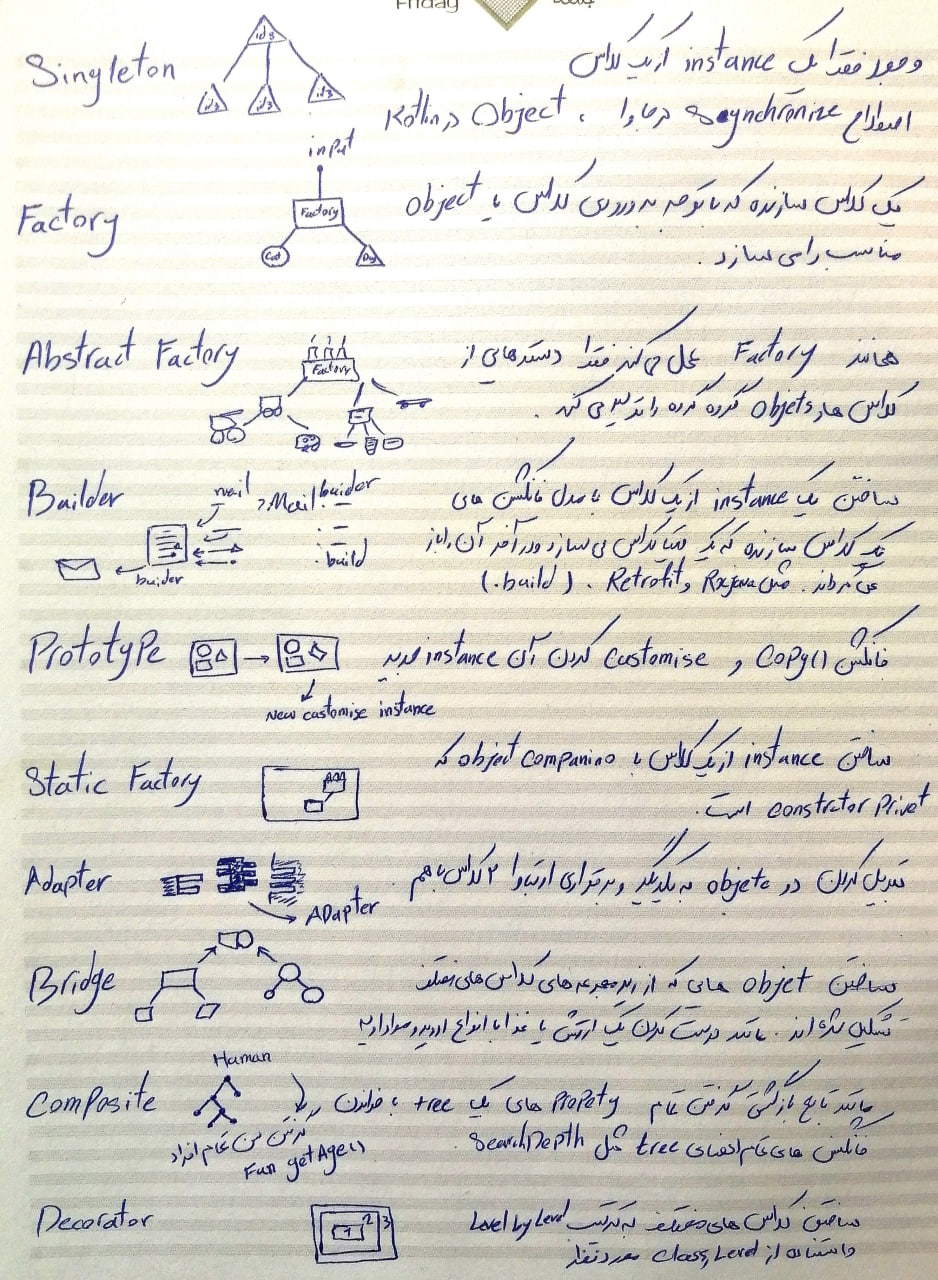 Friday
Singleton
id3
id3
id3
id3
وجود فقط یک instance از یک کلاس
اصطلاح Synchronize در جاوا ، Object در Kotlin
Factory
input
Factory
Cat
Dog
یک کلاس سازنده که با توجه به ورودی کلاس یا object
مناسب را می سازد .
Abstract Factory
Factory
همانند Factory عمل می کند فقط دسته هایی از
کلاس ها و Objets گروه گروه را تولید می کند .
Builder
mail
buider
Mail.buider
. build
ساختن یک instance از یک کلاس با مدل فانکشن های
یک کلاس سازنده که یک کلاس می سازد و در آخر آن را باز
می گرداند . مثل Rxjava و Retrofit . (.build)
Prototype
New castomise instance
فانکشن Copy() و Customise کردن آن instance جدید
Static Factory
ساختن instance از یک کلاس با object companino که
constrtor privet است .
Adapter
ADapter
تبدیل کردن دو objete به یکدیگر و برقراری ارتباط 2 کلاس با هم .
Bridge
ساختن objet هایی که از زیر مجموعه های کلاس های مختلف
تشکیل شده اند . مانند درست کردن یک ارتش یا غذا با انواع
Composite
Human
گرفتن سن تمام افراد
Fun getAge()
مانند تابع بازگشتی گرفتن تمام Propety های یک tree با فراخوندن
فانکشن های تمام اعضای tree مثل SearchDepth
Decorator
1 2 3
ساختن کلاس های مختلف به ترتیب Level by Level
و استفاده از Class, Level مورد نظر